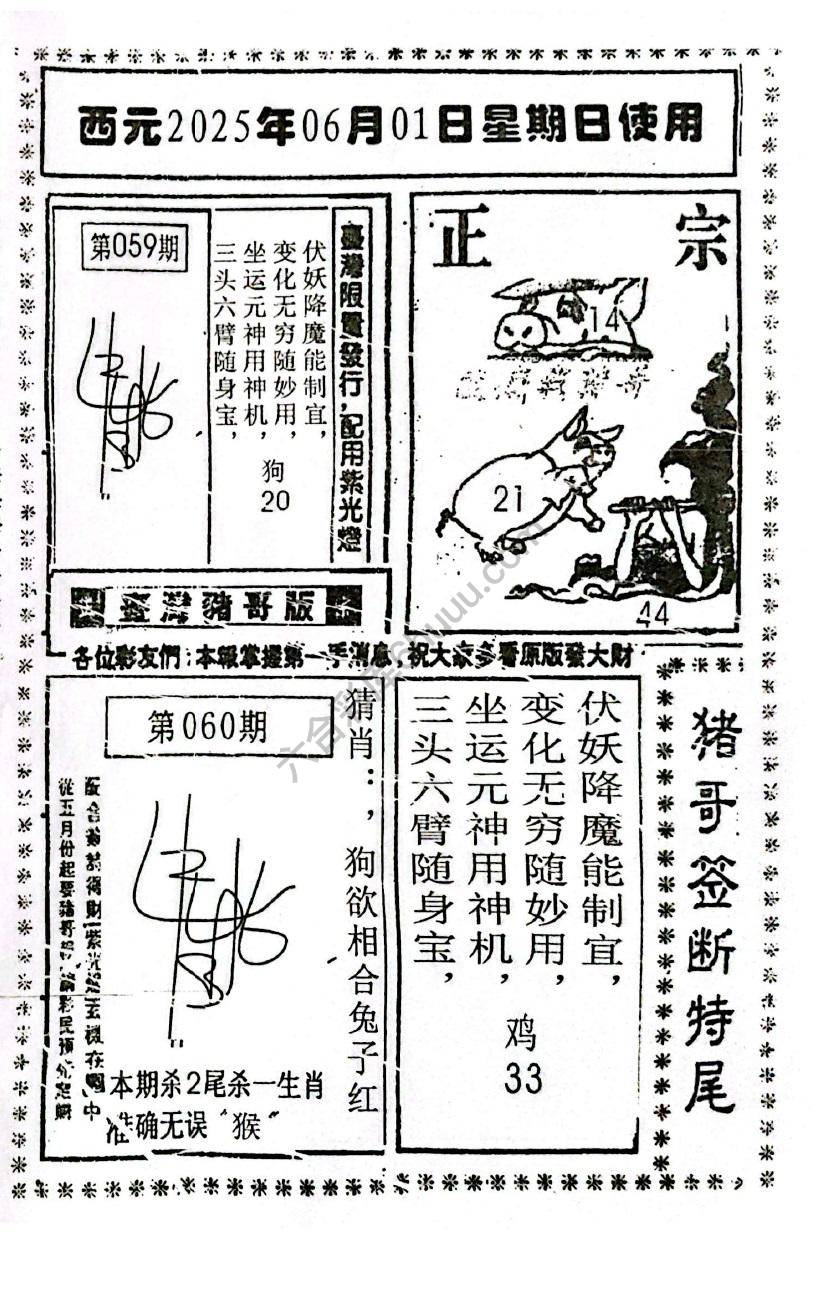 西元2025年06月01日星期日使用
第059期
伏妖降魔能制宜,
变化无穷随妙用,
坐运元神用神机,
三头六臂随身宝,
狗
20
臺灣限量發行,配用紫光燈
正宗
14
21
44
臺灣豬哥版
各位彩友們:本報掌握第一手消息,祝大家多看原版發大財
第060期
猜肖:,狗欲相合兔子红
從五月份起要豬哥
本期杀2尾杀一生肖
准确无误"猴"
伏妖降魔能制宜,
变化无穷随妙用,
坐运元神用神机,
三头六臂随身宝,
鸡
33
猪哥签断特尾
六合彩库